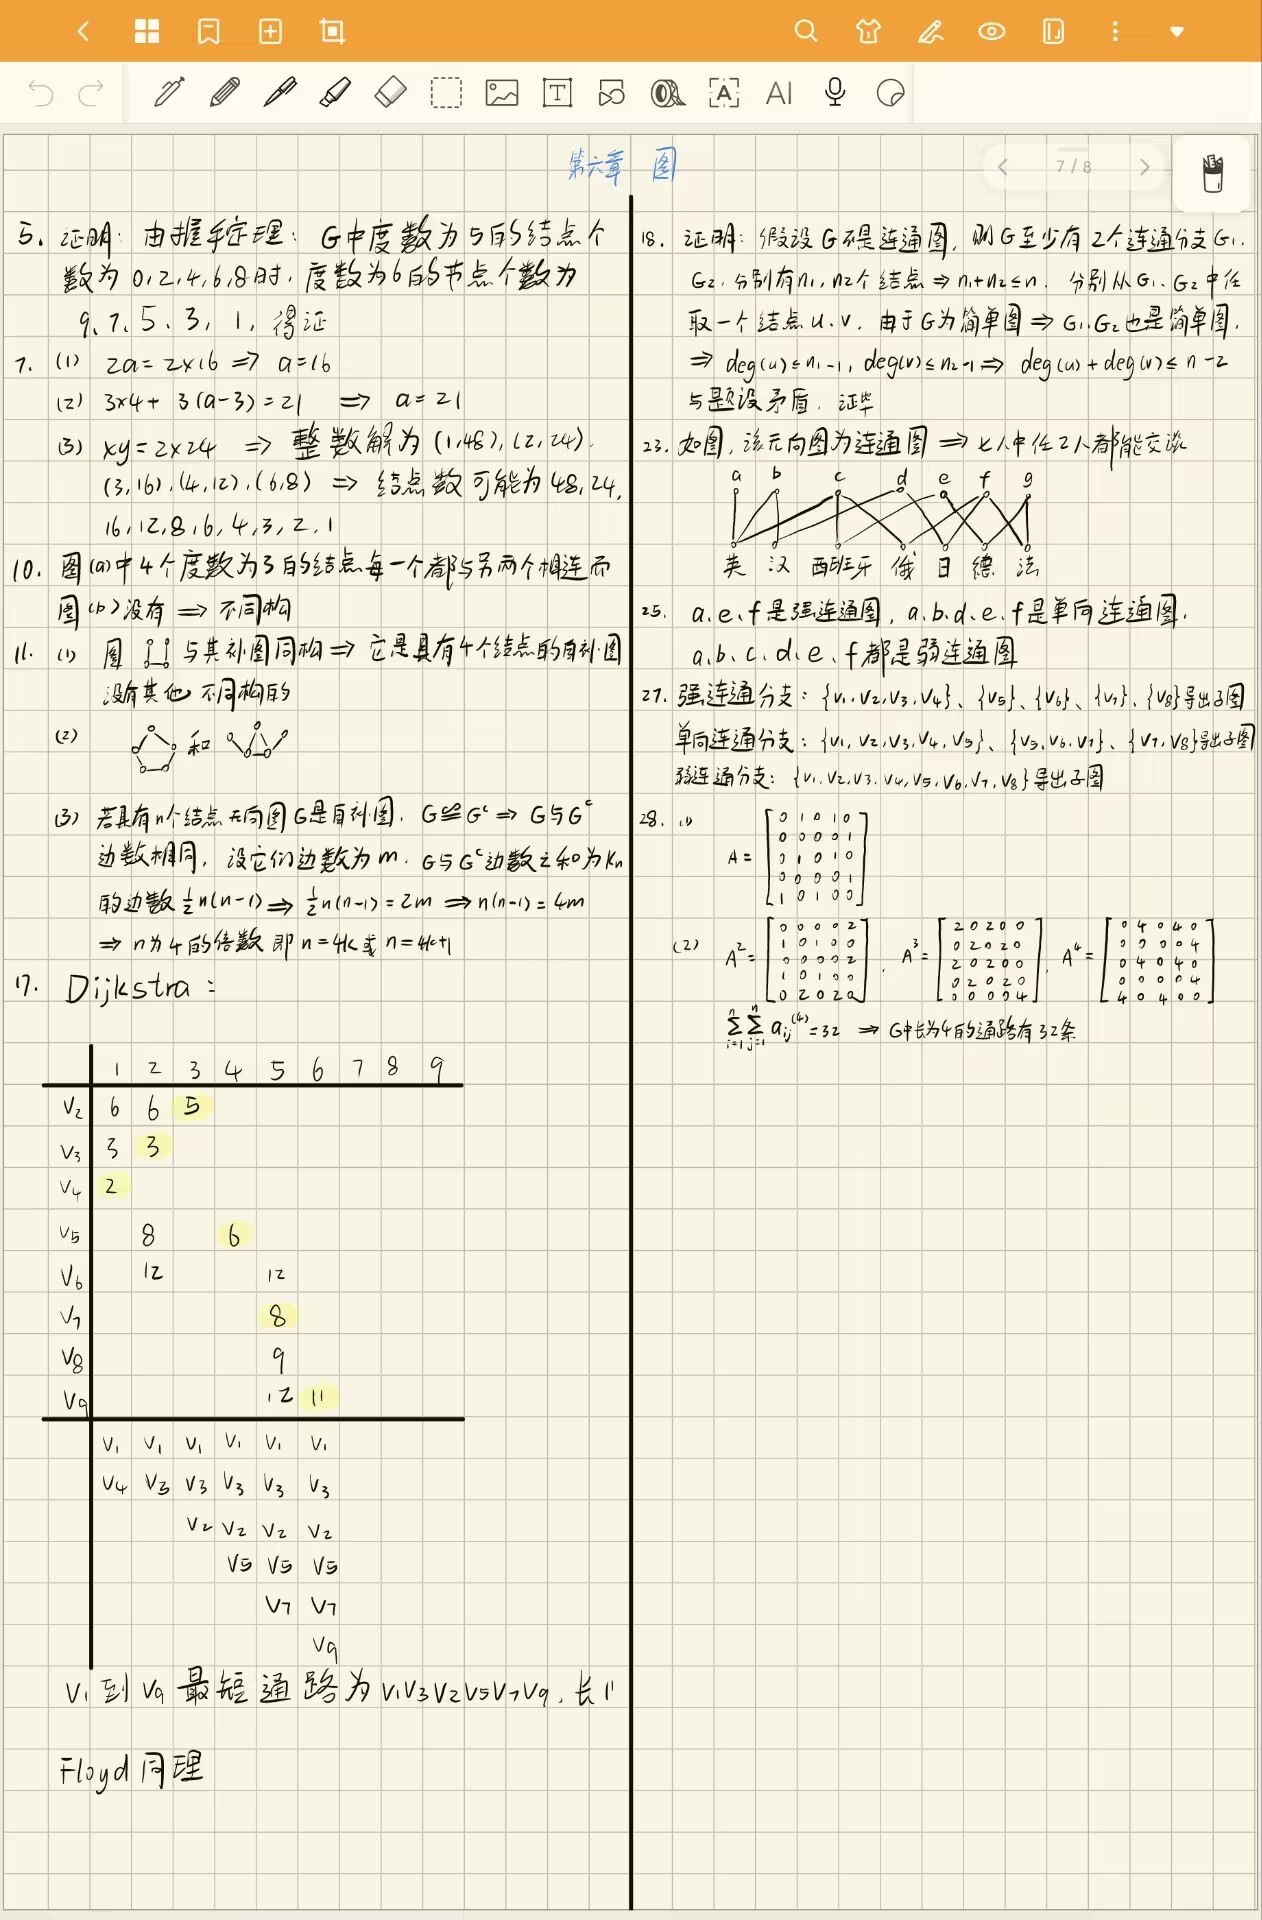 AI
第六章 图
7/8
5. 证明: 由握手定理: G中度数为5的结点个
数为0,2,4,6,8时, 度数为6的节点个数为
9、7、5、3、1, 得证
7. (1) 2a=2×16 ⇒ a=16
(2) 3×4+3(a-3)=21 ⇒ a=21
(3) xy=2×24 ⇒ 整数解为(1,48),(2,24).
(3,16),(4,12),(6,8) ⇒ 结点数可能为48,24,
16,12,8,6,4,3,2,1
10. 图(a)中4个度数为3的结点每一个都与另两个相连而
图(b)没有 ⇒ 不同构
11. (1) 图 与其补图同构 ⇒ 它是具有4个结点的自补图
没有其他不同构的
(2) 和
(3) 若具有n个结点无向图G是自补图, G≌Gᶜ ⇒ G与Gᶜ
边数相同, 设它们边数为m, G与Gᶜ边数之和为Kn
的边数½n(n-1) ⇒ ½n(n-1)=2m ⇒ n(n-1)=4m
⇒ n为4的倍数 即 n=4k或n=4k+1
17. Dijkstra:
1 2 3 4 5 6 7 8 9
V2 6 6 5
V3 3 3
V4 2
V5 8 6
V6 12 12
V7 8
V8 9
V9 12 11
V1 V1 V1 V1 V1 V1
V4 V3 V3 V3 V3 V3
V2 V2 V2 V2
V5 V5 V5
V7 V7
V9
V1到V9最短通路为V1V3V2V5V7V9, 长11
Floyd同理
18. 证明: 假设G不是连通图, 则G至少有2个连通分支G1、
G2, 分别有n1,n2个结点 ⇒ n1+n2≤n. 分别从G1、G2中任
取一个结点u、v, 由于G为简单图 ⇒ G1、G2也是简单图,
⇒ deg(u)≤n1-1, deg(v)≤n2-1 ⇒ deg(u)+deg(v)≤n-2
与题设矛盾, 证毕
23. 如图, 该无向图为连通图 ⇒ 七人中任2人都能交谈
a b c d e f g
英 汉 西班牙 俄 日 德 法
25. a、e、f是强连通图, a、b、d、e、f是单向连通图,
a、b、c、d、e、f都是弱连通图
27. 强连通分支: {V1、V2,V3,V4}、{V5}、{V6}、{V7}、{V8}导出子图
单向连通分支: {V1,V2,V3,V4,V5}、{V5,V6,V7}、{V7,V8}导出子图
弱连通分支: {V1,V2,V3,V4,V5,V6,V7,V8}导出子图
28. (1)
0 1 0 1 0
0 0 0 0 1
A= 0 1 0 1 0
0 0 0 0 1
1 0 1 0 0
0 0 0 0 2 2 0 2 0 0 0 4 0 4 0
1 0 1 0 0 0 2 0 2 0 0 0 0 0 4
(2) A²= 0 0 0 0 2, A³= 2 0 2 0 0, A⁴= 0 4 0 4 0
1 0 1 0 0 0 2 0 2 0 0 0 0 0 4
0 2 0 2 0 0 0 0 0 4 4 0 4 0 0
∑ⁿᵢ₌₁∑ⁿⱼ₌₁ aij⁽⁴⁾=32 ⇒ G中长为4的通路有32条